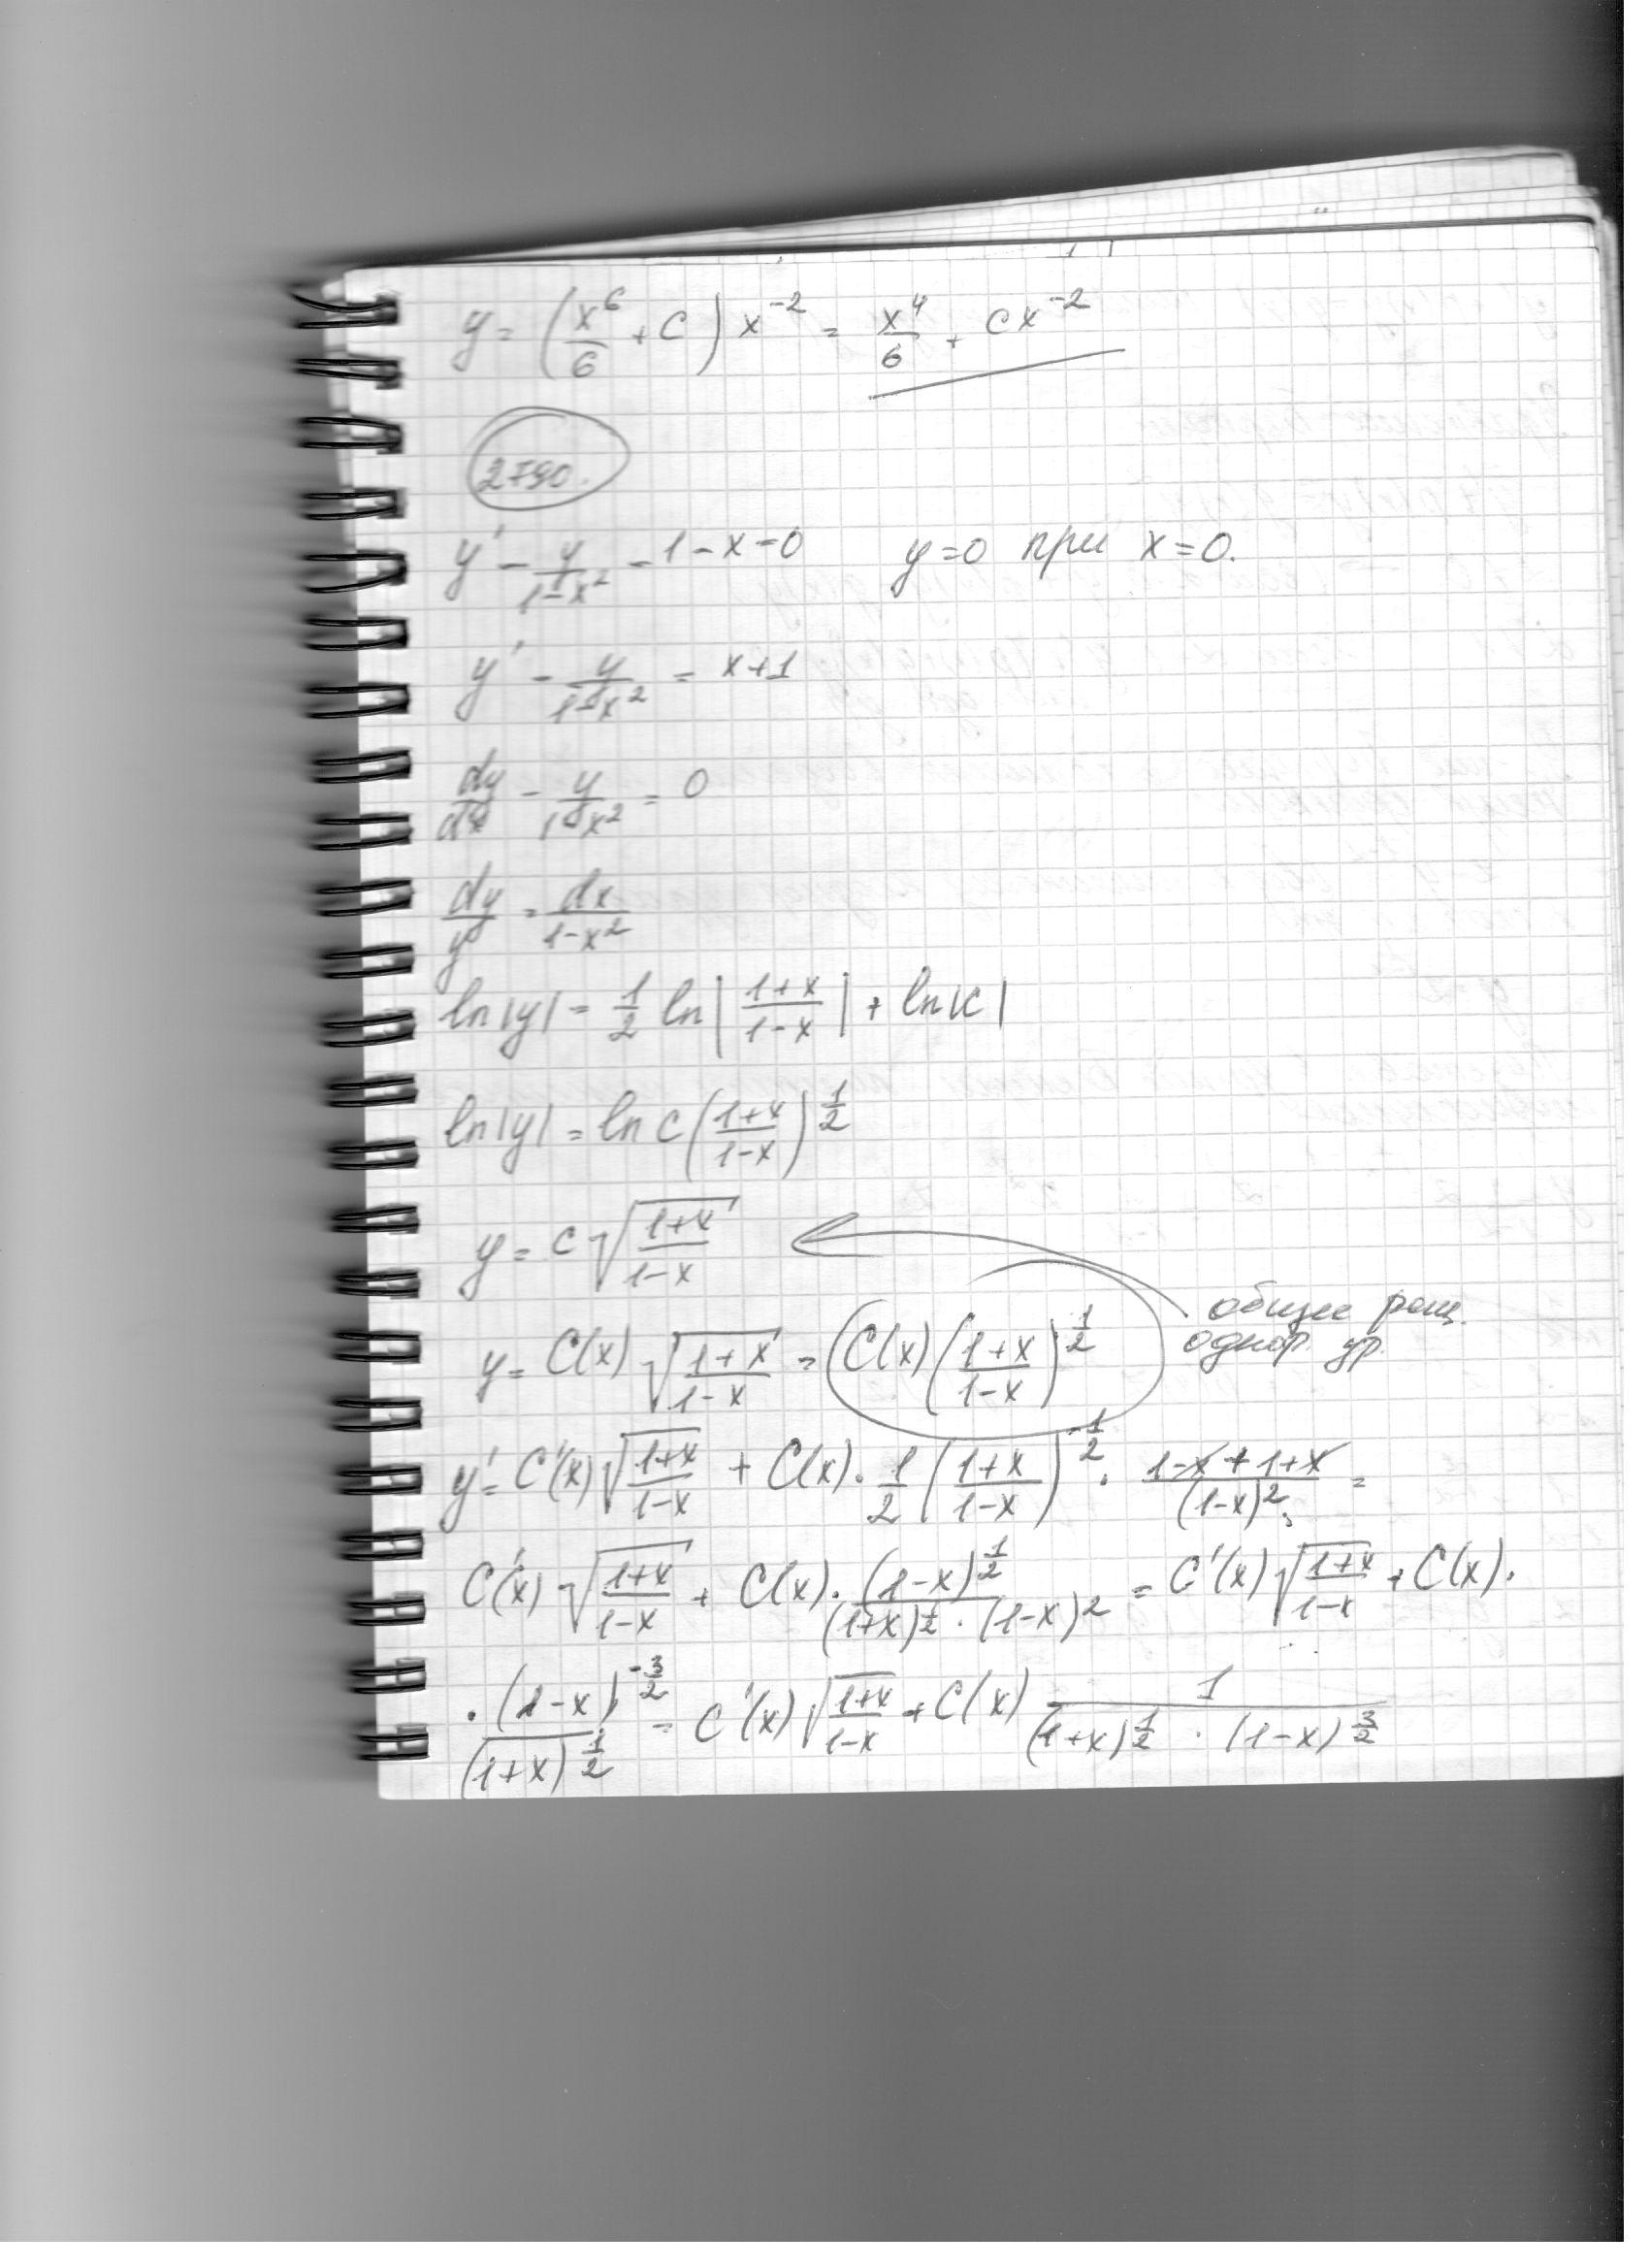 y = (x⁶/6 + C) x⁻² = x⁴/6 + Cx⁻²
2790.
y' - y/(1-x²) - 1 - x = 0 y=0 при x=0.
y' - y/(1-x²) = x+1
dy/dx - y/(1-x²) = 0
dy/y = dx/(1-x²)
ln|y| = 1/2 ln|(1+x)/(1-x)| + ln|C|
ln|y| = ln C((1+x)/(1-x))^(1/2)
y = C√((1+x)/(1-x))
общее реш.
однор. ур.
y = C(x)√((1+x)/(1-x)) = C(x)((1+x)/(1-x))^(1/2)
y' = C'(x)√((1+x)/(1-x)) + C(x)·1/2((1+x)/(1-x))^(-1/2) · (1-x+1+x)/(1-x)² =
C'(x)√((1+x)/(1-x)) + C(x)·(1-x)^(1/2)/((1+x)^(1/2)·(1-x)²) = C'(x)√((1+x)/(1-x)) + C(x)·
·(1-x)^(-3/2)/(1+x)^(1/2) = C'(x)√((1+x)/(1-x)) + C(x) 1/((1+x)^(1/2)·(1-x)^(3/2))